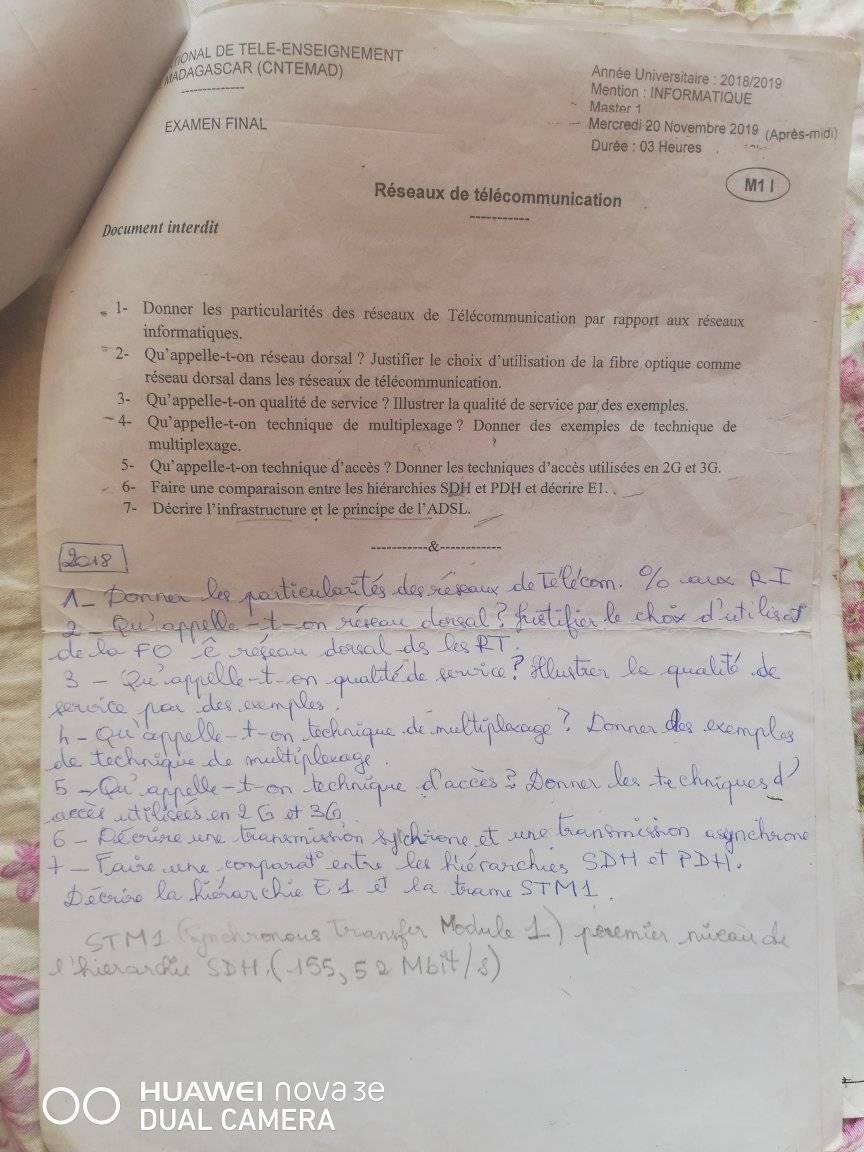 IONAL DE TELE-ENSEIGNEMENT
MADAGASCAR (CNTEMAD)
------------
EXAMEN FINAL
Année Universitaire : 2018/2019
Mention : INFORMATIQUE
Master 1
Mercredi 20 Novembre 2019 (Après-midi)
Durée : 03 Heures
M1 I
Réseaux de télécommunication
-----------
Document interdit
1- Donner les particularités des réseaux de Télécommunication par rapport aux réseaux
informatiques.
2- Qu'appelle-t-on réseau dorsal ? Justifier le choix d'utilisation de la fibre optique comme
réseau dorsal dans les réseaux de télécommunication.
3- Qu'appelle-t-on qualité de service ? Illustrer la qualité de service par des exemples.
4- Qu'appelle-t-on technique de multiplexage ? Donner des exemples de technique de
multiplexage.
5- Qu'appelle-t-on technique d'accès ? Donner les techniques d'accès utilisées en 2G et 3G.
6- Faire une comparaison entre les hiérarchies SDH et PDH et décrire E1.
7- Décrire l'infrastructure et le principe de l'ADSL.
-----------&-----------
2018
1- Donner les particularités des réseaux de Télécom. % aux RI
2 - Qu'appelle-t-on réseau dorsal ? Justifier le choix d'utilisat°
de la FO ê réseau dorsal ds les RT.
3 - Qu'appelle-t-on qualité de service ? Illustrer la qualité de
service par des exemples.
4 - Qu'appelle-t-on technique de multiplexage ? Donner des exemples
de technique de multiplexage.
5 - Qu'appelle-t-on technique d'accès ? Donner les techniques d'
accès utilisées en 2G et 3G
6 - Décrire une transmission sychrone et une transmission asynchrone
7 - Faire une comparat° entre les hiérarchies SDH et PDH.
Décrire la hiérarchie E1 et la trame STM1.
STM1 (Synchronous Transfer Module 1) premier niveau de
l'hierarchie SDH. (155,52 Mbit/s)
HUAWEI nova 3e
DUAL CAMERA